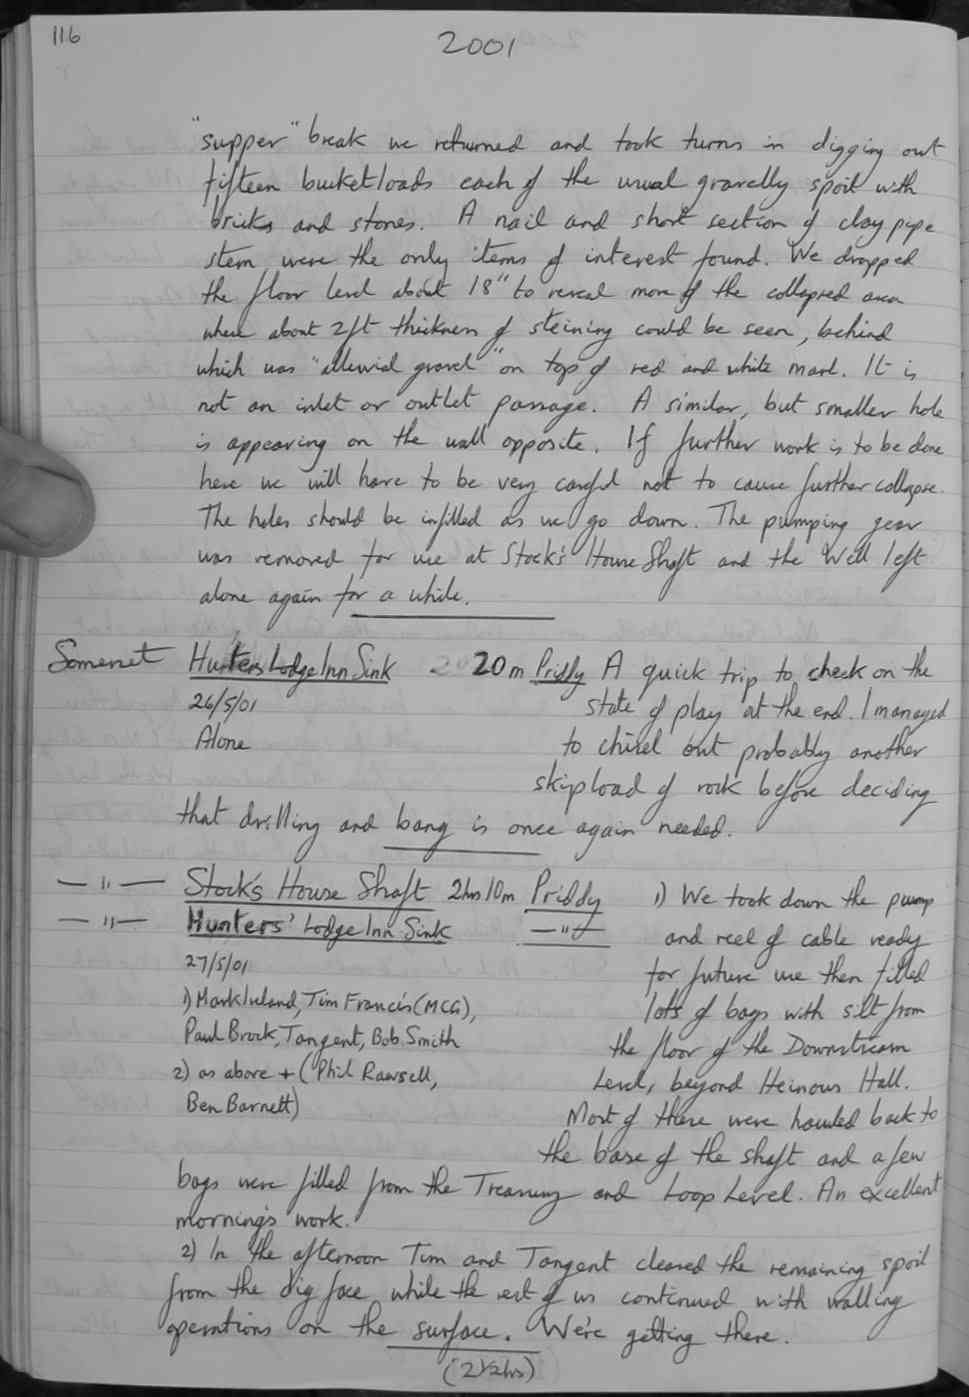 116
2001
"supper" break we returned and took turns in digging out
fifteen bucketloads each of the usual gravelly spoil with
bricks and stones. A nail and short section of clay pipe
stem were the only items of interest found. We dropped
the floor level about 18" to reveal more of the collapsed area
where about 2ft thickness of steining could be seen, behind
which was "alluvial gravel" on top of red and white marl. It is
not an inlet or outlet passage. A similar, but smaller hole
is appearing on the wall opposite. If further work is to be done
here we will have to be very careful not to cause further collapse.
The holes should be infilled as we go down. The pumping gear
was removed for use at Stock's House Shaft and the Well left
alone again for a while.
Somerset Hunters Lodge Inn Sink 20m Priddy A quick trip to check on the
26/5/01 state of play at the end. I managed
Alone to chisel out probably another
skipload of rock before deciding
that drilling and bang is once again needed.
— " — Stock's House Shaft 2hrs10m Priddy 1) We took down the pump
— " — Hunters' Lodge Inn Sink — " — and reel of cable ready
27/5/01 for future use then filled
1) Mark Ireland, Tim Francis (MCG), lots of bags with silt from
Paul Brock, Tangent, Bob Smith the floor of the Downstream
2) as above + (Phil Rawsell, Level, beyond Heinous Hall.
Ben Barnett) Most of these were hauled back to
the base of the shaft and a few
bags were filled from the Treasury and Loop Level. An excellent
morning's work.
2) In the afternoon Tim and Tangent cleared the remaining spoil
from the dig face while the rest of us continued with walling
operations on the surface. We're getting there.
(2½hrs)